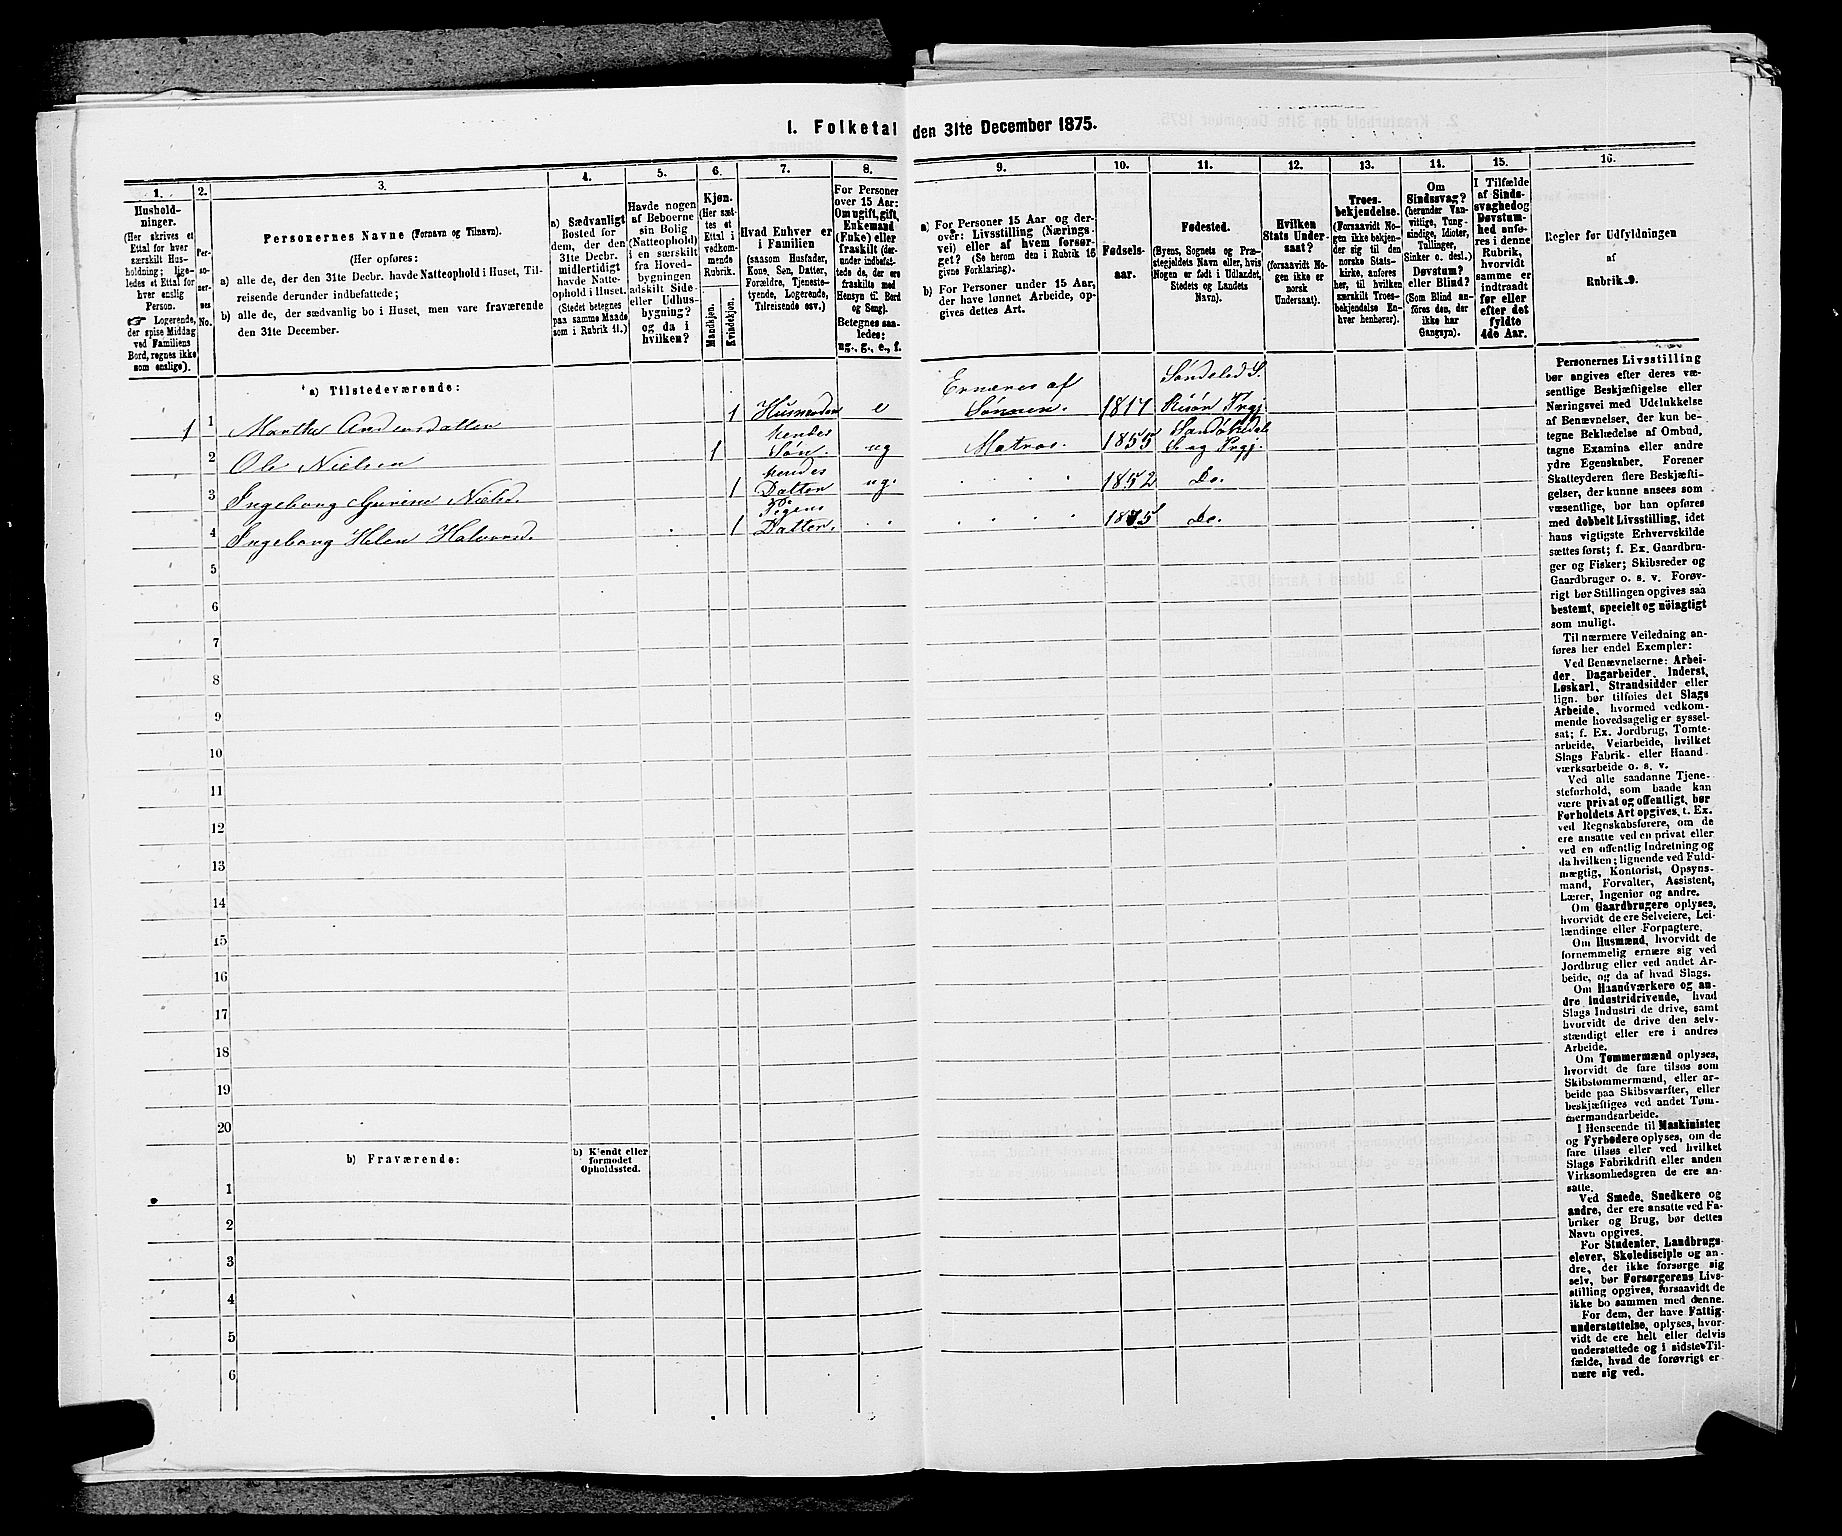 I. Folketal den 31te December 1875.
1.
2.
3.
4.
5.
6.
7.
8.
9.
10.
11.
12.
13.
14.
15.
16.
Hushold-
ninger.
(Her skrives et
Ettal for hver
særskilt Hus-
holdning; lige-
ledes et Ettal for
hver enslig
Person.
☞ Logerende,
der spise Middag
ved Familiens
Bord, regnes ikke
som enslige).
Per-
so-
ner-
nes
No.
Personernes Navne (Fornavn og Tilnavn).
(Her opføres:
a) alle de, der den 31te Decbr. havde Natteophold i Huset, Til-
reisende derunder indbefattede;
b) alle de, der sædvanlig bo i Huset, men vare fraværende
den 31te December.
a) Sædvanligt
Bosted for
dem, der den
31te Decbr.
midlertidigt
havde Natte-
ophold i Huset.
(Stedet betegnes
paa samme Maade
som i Rubrik 11.)
Havde nogen
af Beboerne
sin Bolig
(Natteophold)
i en særskilt
fra Hoved-
bygningen
adskilt Side-
eller Udhus-
bygning?
og da i
hvilken?
Kjøn.
(Her sæt-
tes et
Ettal i
vedkom-
mende
Rubrik.
Mandkjøn.
Kvindekjøn.
Hvad Enhver er
i Familien
(saasom Husfader,
Kone, Søn, Datter,
Forældre, Tjeneste-
tyende, Logerende,
Tilreisende osv.)
For Personer
over 15 Aar:
Om ugift, gift,
Enkemand
(Enke) eller
fraskilt (der-
under indbefat-
tede de, der ere
fraskilte med
Hensyn til Bord
og Seng).
Betegnes saa-
ledes:
ug., g., e., f.
a) For Personer 15 Aar og der-
over: Livsstilling (Nærings-
vei) eller af hvem forsør-
get? (Se herom den i Rubrik 16
givne Forklaring).
b) For Personer under 15 Aar,
der have lønnet Arbeide, op-
gives dettes Art.
Fødsels-
aar.
Fødested.
(Byens, Sognets og Præ-
stegjeldets Navn eller, hvis
Nogen er født i Udlandet,
Stedets og Landets
Navn).
Hvilken
Stats Under-
saat?
(forsaavidt No-
gen ikke er
norsk
Undersaat).
Troes-
bekjendelse.
(Forsaavidt No-
gen ikke bekjen-
der sig til den
norske Stats-
kirke, anføres
her, til hvilken
særskilt Troes-
bekjendelse En-
hver henhører).
Om
Sindssvag?
(herunder Van-
vittige, Tung-
sindige, Idioter,
Tullinger,
Sinker o. desl.)
Døvstum?
eller Blind?
(Som Blind an-
føres den, der
ikke har
Gangsyn).
I Tilfælde
af Sinds-
svaghed og
Døvstum-
hed anfø-
res i denne
Rubrik,
hvorvidt
samme er
indtraadt
før eller
efter det
fyldte
4de Aar.
Regler for Udfyldningen
af
Rubrik 9.
a) Tilstedeværende:
1 1 Marthe Andersdatter 1 Husmoder e Ernæres af Sønnen. 1817 Søndeled S. Risør Prgj
2 Ole Nielsen 1 hendes Søn. ug Matros. 1855 Sogn Prgj.
3 Ingeborg Gurine Nielsd. 1 hendes Datter ug. 1852 Do.
4 Ingeborg Helen Halvorsd. 1 Pigens Datter. 1875 Do.
5
6
7
8
9
10
11
12
13
14
15
16
17
18
19
20
b) Fraværende:
b) Kjendt eller
formodet
Opholdssted.
1
2
3
4
5
6
Personernes Livsstilling
bør angives efter deres væ-
sentlige Beskjæftigelse eller
Næringsvei med Udelukkelse
af Benævnelser, der kun be-
tegne Beklædelse af Ombud,
tagne Examina eller andre
ydre Egenskaber. Forener
Skatteyderen flere Beskjæfti-
gelser, der kunne ansees som
væsentlige, bør han opføres
med dobbelt Livsstilling, idet
hans vigtigste Erhvervskilde
sættes først; f. Ex. Gaardbru-
ger og Fisker; Skibsreder og
Gaardbruger o. s. v. Forøv-
rigt bør Stillingen opgives saa
bestemt, specielt og nøiagtigt
som muligt.
Til nærmere Veiledning an-
føres her endel Exempler:
Ved Benævnelserne: Arbei-
der, Dagarbeider, Inderst,
Løskarl, Strandsidder eller
lign. bør tilføies det Slags
Arbeide, hvormed vedkom-
mende hovedsagelig er syssel-
sat; f. Ex. Jordbrug, Tomte-
arbeide, Veiarbeide, hvilket
Slags Fabrik- eller Haand-
værksarbeide o. s. v.
Ved alle saadanne Tjene-
steforhold, som baade kan
være privat og offentligt, bør
Forholdets Art opgives, t. Ex.
ved Regnskabsførere, om de
ere ansatte ved en privat eller
ved en offentlig Indretning og
da hvilken; lignende ved Fuld-
mægtig, Kontorist, Opsyns-
mand, Forvalter, Assistent,
Lærer, Ingeniør og andre.
Om Gaardbrugere oplyses,
hvorvidt de ere Selveiere, Lei-
lændinge eller Forpagtere.
Om Husmænd, hvorvidt de
fornemmelig ernære sig ved
Jordbrug eller ved andet Ar-
beide, og da af hvad Slags.
Om Haandværkere og an-
dre Industridrivende, hvad
Slags Industri de drive, samt
hvorvidt de drive den selv-
stændigt eller ere i andres
Arbeide.
Om Tømmermænd oplyses,
hvorvidt de fare tilsøs som
Skibstømmermænd, eller ar-
beide paa Skibsværfter, eller
beskjæftiges ved andet Tøm-
mermandsarbeide.
I Henseende til Maskinister
og Fyrbødere oplyses, om de
fare tilsøs eller ved hvilket
Slags Fabrikdrift eller anden
Virksomhedsgren de ere an-
satte.
Ved Smede, Snedkere og
andre, der ere ansatte ved Fa-
briker og Brug, bør dettes
Navn opgives.
For Studenter, Landbrugs-
elever, Skoledisciple og an-
dre, der ikke forsørge sig
selv, bør Forsørgerens Livs-
stilling opgives, forsaavidt de
ikke bo sammen med denne.
For dem, der have Fattig-
understøttelse, oplyses, hvor-
vidt de ere helt eller delvis
understøttede og i sidste Til-
fælde, hvad de forøvrigt er-
nære sig ved.